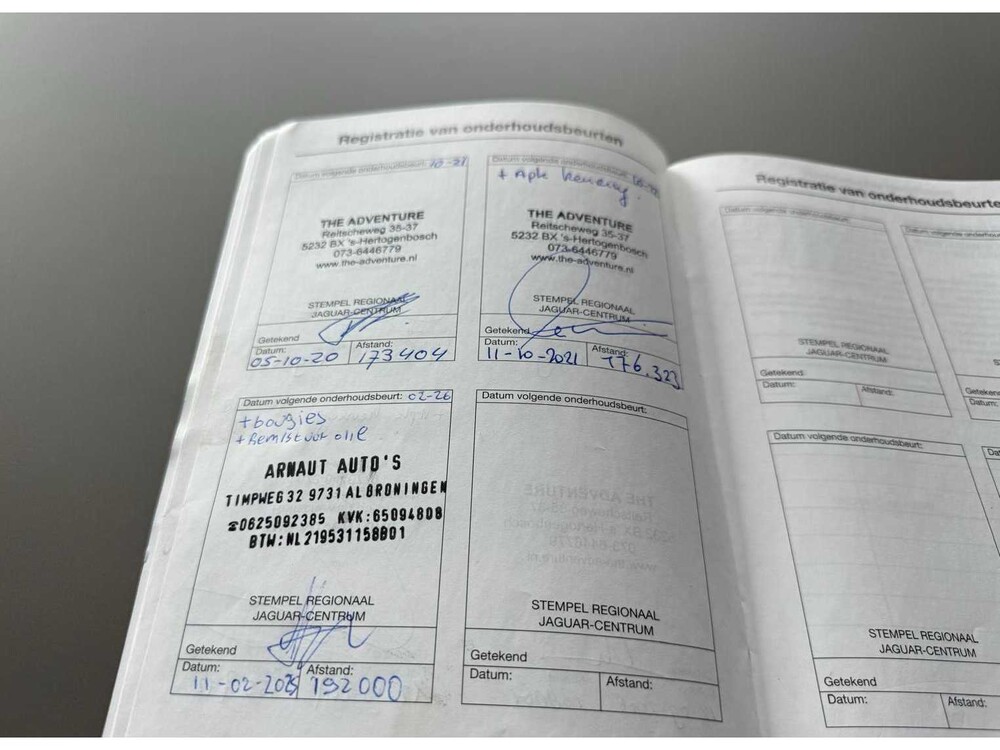 Registratie van onderhoudsbeurten
Datum volgende onderhoudsbeurt: 10-21
THE ADVENTURE
Reitscheweg 35-37
5232 BX 's-Hertogenbosch
073-6446779
www.the-adventure.nl
STEMPEL REGIONAAL
JAGUAR-CENTRUM
Getekend
Datum: Afstand:
05-10-20 173404
Datum volgende onderhoudsbeurt:
+ Apk keuring
THE ADVENTURE
Reitscheweg 35-37
5232 BX 's-Hertogenbosch
073-6446779
www.the-adventure.nl
STEMPEL REGIONAAL
JAGUAR-CENTRUM
Getekend
Datum: Afstand:
11-10-2021 176.323
Datum volgende onderhoudsbeurt: 02-26
+bougies
+Remlstuur olie
ARNAUT AUTO'S
TIMPWEG 32 9731 AL GRONINGEN
☎0625092385 KVK:65094808
BTW:NL219531158B01
STEMPEL REGIONAAL
JAGUAR-CENTRUM
Getekend
Datum: Afstand:
11-02-2025 192000
Datum volgende onderhoudsbeurt:
STEMPEL REGIONAAL
JAGUAR-CENTRUM
Getekend
Datum: Afstand:
Registratie van onderhoudsbeurten
Datum volgende onderhoudsbeurt:
STEMPEL REGIONAAL
JAGUAR-CENTRUM
Getekend
Datum: Afstand:
Datum volgende onderhoudsbeurt:
Getekend
Datum:
Datum volgende onderhoudsbeurt:
STEMPEL REGIONAAL
JAGUAR-CENTRUM
Getekend
Datum: Afstand: